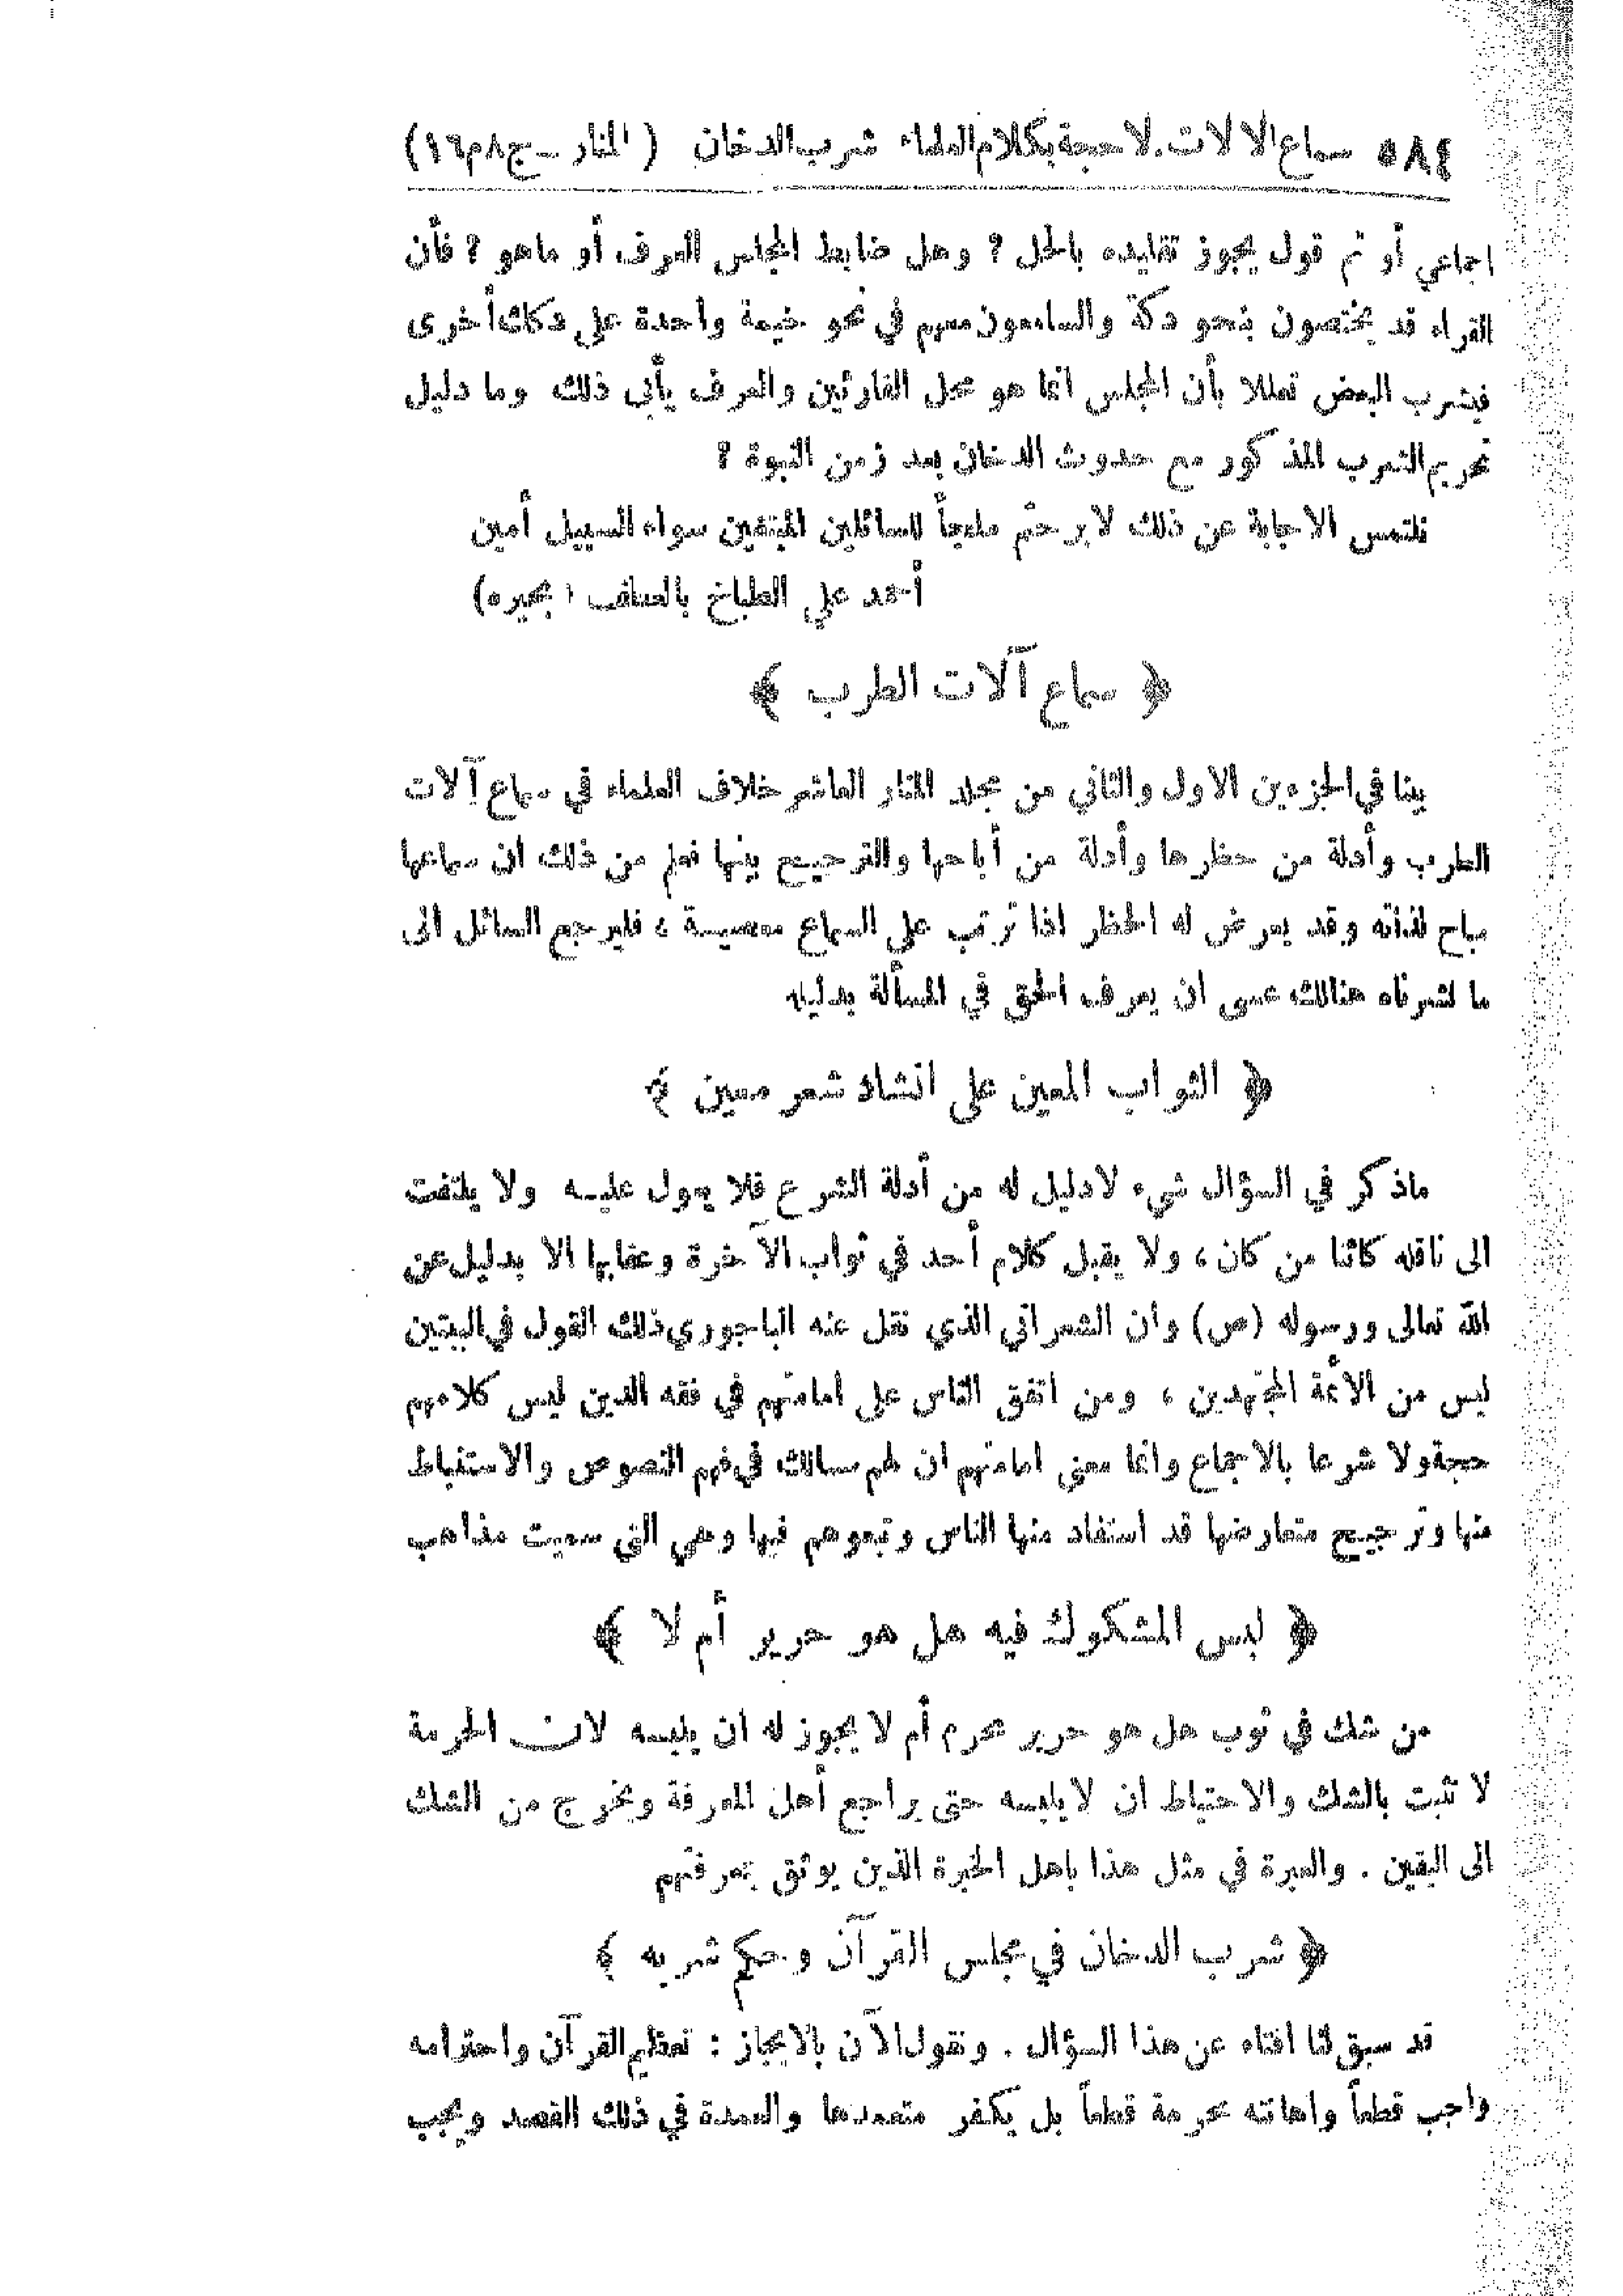 ٥٨٤ سماع الآلات. لا حجة بكلام العلماء شرب الدخان (المنار ــ ج٨م١٦)
اجماعي أو ثم قول يجوز تقليده بالحل ؟ وهل ضابط المجلس العرف أو ماهو ؟ فأن
القراء قد يختصون بنحو دكة والسامعون معهم في نحو خيمة واحدة على دكك أخرى
فيشرب البعض تعللا بأن المجلس انما هو محل القارئين والعرف يأبى ذلك وما دليل
تحريم الشرب المذكور مع حدوث الدخان بعد زمن النبوة ؟
نلتمس الاجابة عن ذلك لابرحتم ملجأ للسائلين المبتغين سواء السبيل أمين
أحمد علي الطباخ (بحيره)
﴿ سماع آلات الطرب ﴾
بينا في الجزءين الاول والثاني من مجلد المنار العاشر خلاف العلماء في سماع آلات
الطرب وأدلة من حظرها وأدلة من أباحها والترجيح بينها فعلم من ذلك ان سماعها
مباح لذاته وقد يعرض له الحظر اذا ترتب على السماع معصيسة ، فليرجع السائل الى
ما نشرناه هنالك عسى ان يعرف الحق في المسألة بدليله
﴿ الثواب المعين على انشاد شعر معين ﴾
ماذكر في السؤال شيء لادليل له من أدلة الشرع فلا يعول عليه ولا يلتفت
الى ناقله كائنا من كان ، ولا يقبل كلام أحد في ثواب الآخرة وعقابها الا بدليل عن
الله تعالى ورسوله (ص) وان الشعراني الذي نقل عنه الباجوري ذلك القول في البيتين
ليس من الأئمة المجتهدين ، ومن اتفق الناس على امامتهم في فقه الدين ليس كلامهم
حجة ولا شرعا بالاجماع وانما معنى امامتهم ان لهم مسالك في فهم النصوص والاستنباط
منها وترجيح متعارضها قد استفاد منها الناس وتبعوهم فيها وهي التي سميت مذاهب
﴿ لبس المشكوك فيه هل هو حرير أم لا ﴾
من شك في ثوب هل هو حرير محرم أم لا يجوز له ان يلبسه لان الحرمة
لا تثبت بالشك والاحتياط ان لا يلبسه حتى يراجع أهل المعرفة ويخرج من الشك
الى اليقين . والعبرة في مثل هذا باهل الخبرة الذين يوثق بمعرفتهم
﴿ شرب الدخان في مجلس القرآن وحكم شربه ﴾
قد سبق لنا افتاء عن هذا السؤال . ونقول الآن بالايجاز : تعظيم القرآن واحترامه
واجب قطعاً واهانته محرمة قطعاً بل يكفر متعمدها والعمدة في ذلك القصد ويجب